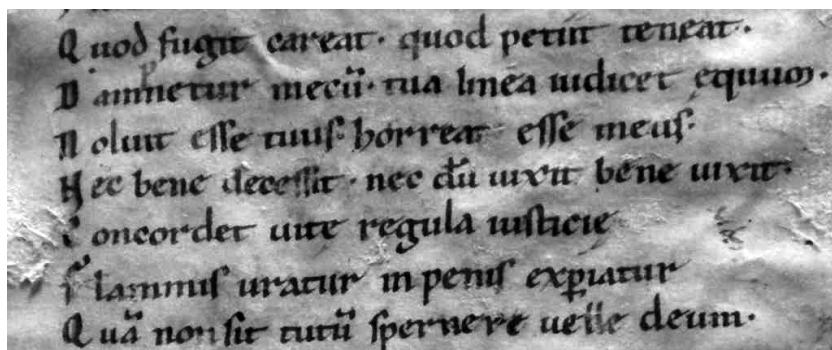 Quod fugit careat· quod petiit teneat·
Dampnetur mecū· tua linea iudicet equum·
Noluit esse tuus· horreat esse meus·
Nec bene decessit· nec dū uixit bene uixit·
Concordet uite regula iusticie
Flammis uratur in penis exꝑiatur
Quā non sit tutū spernere uelle deum·